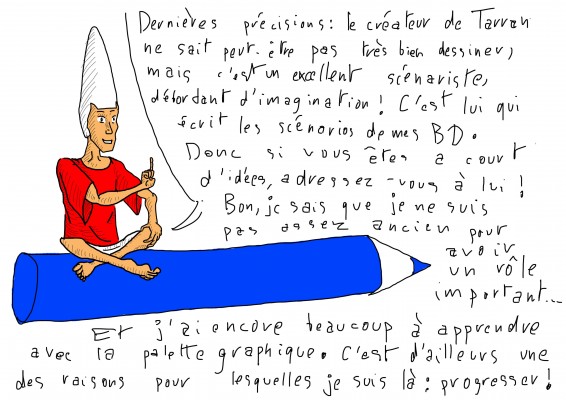 Dernières précisions : le créateur de Tarran
ne sait peut-être pas très bien dessiner,
mais c'est un excellent scénariste,
débordant d'imagination ! C'est lui qui
écrit les scénorios de mes BD.
Donc si vous êtes a court
d'idées, adressez-vous à lui !
Bon, je sais que je ne suis
pas assez ancien pour
avoir
un rôle
important...
Et j'ai encore beaucoup à apprendre
avec la palette graphique. C'est d'ailleurs une
des raisons pour lesquelles je suis là : progresser !